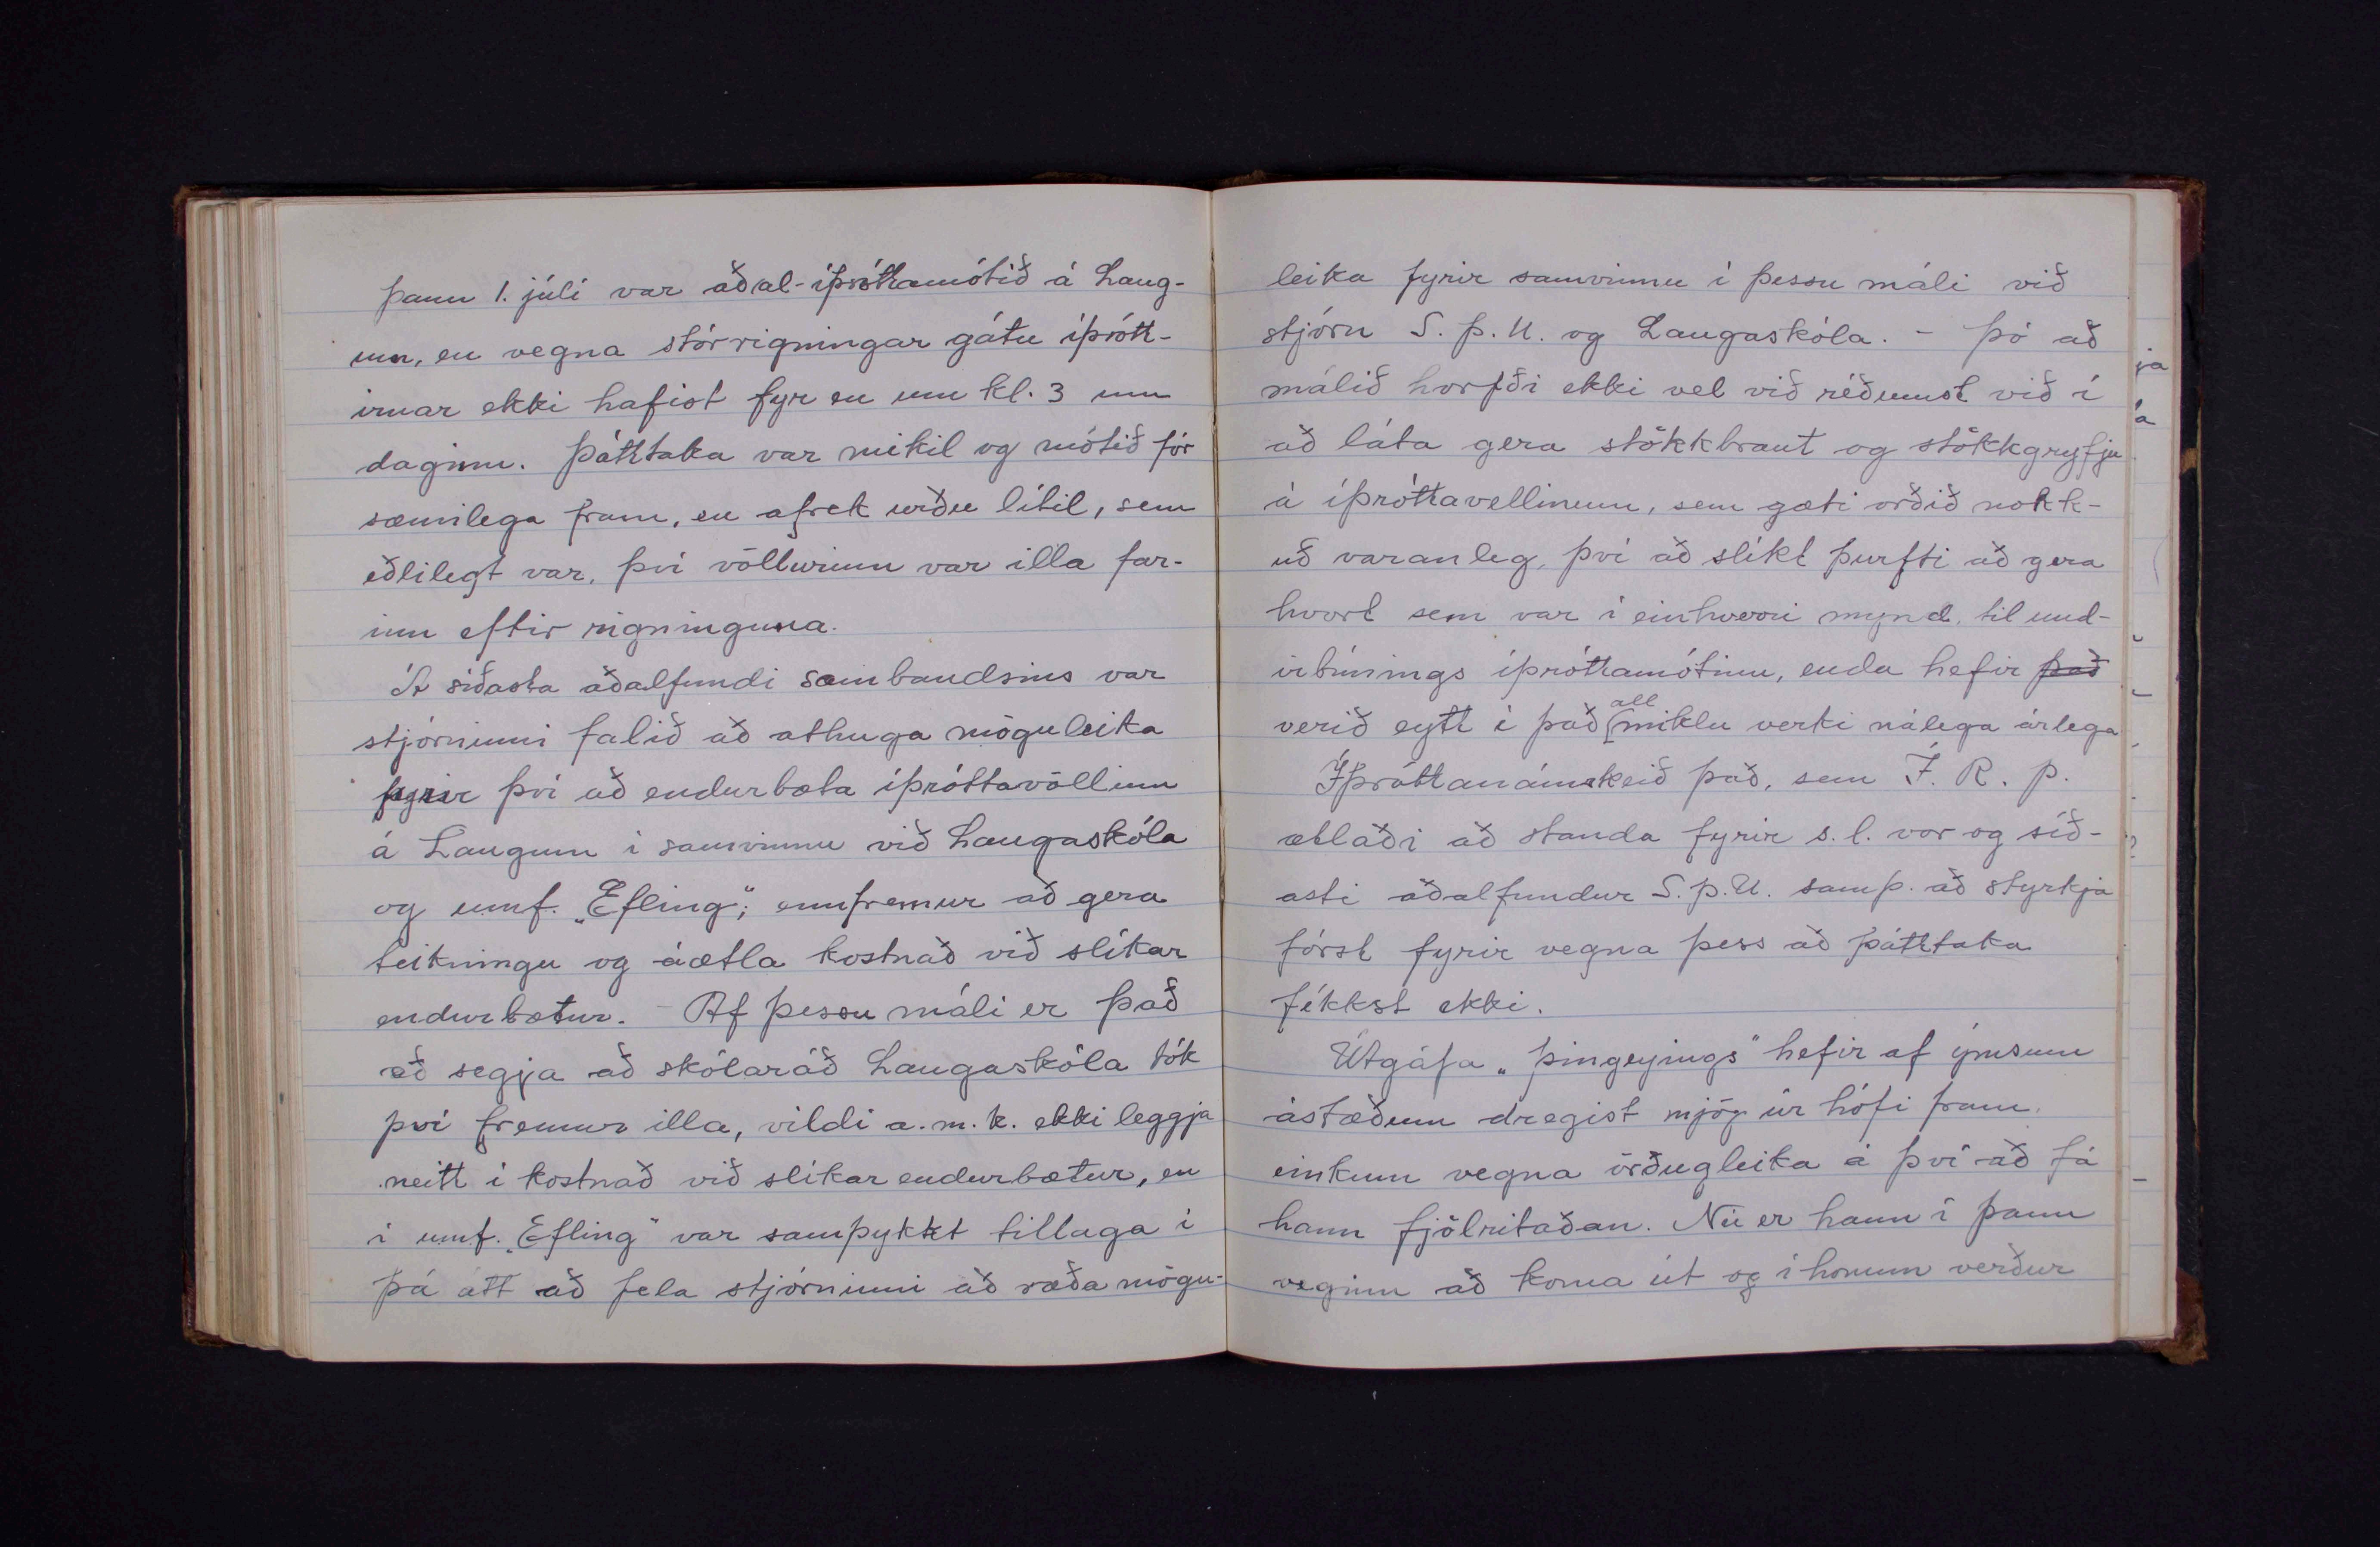 Þann 1. júlí var aðal-íþróttamótið á Laug-
um, en vegna stórrigningar gátu íþrótt-
irnar ekki hafist fyr en um kl. 3 um
daginn. Þátttaka var mikil og mótið fór
sæmilega fram, en afrek urðu lítil, sem
eðlilegt var, því völlurinn var illa far-
inn eftir rigninguna.
Á síðasta aðalfundi sambandsins var
stjórninni falið að athuga möguleika
fyrir því að endurbæta íþróttavöllinn
á Laugum í samvinnu við Laugaskóla
og umf. „Efling“; ennfremur að gera
teikningu og áætla kostnað við slíkar
endurbætur. - Af þessu máli er það
að segja að skólaráð Laugaskóla tók
því fremur illa, vildi a.m.k. ekki leggja
neitt í kostnað við slíkar endurbætur, en
í umf. „Efling“ var samþykkt tillaga í
þá átt að fela stjórninni að ræða mögu-
leika fyrir samvinnu í þessu máli við
stjórn S.Þ.U. og Laugaskóla. - Þó að
málið horfði ekki vel við réðumst við í
að láta gera stökkbraut og stökkgryfju
á íþróttavellinum, sem gæti orðið nokk-
uð varanleg, því að slíkt þurfti að gera
hvort sem var í einhverri mynd, til und-
irbúnings íþróttamótinu, enda hefir það
verið eytt í það all miklu verki nálega árlega
Íþróttanámskeið það, sem Í. R. Þ.
ætlaði að standa fyrir s.l. vor og síð-
asti aðalfundur S.Þ.U. samþ. að styrkja
fórst fyrir vegna þess að þátttaka
fékkst ekki.
Útgáfa „Þingeyings“ hefir af ýmsum
ástæðum dregist mjög úr hófi fram,
einkum vegna örðugleika á því að fá
hann fjölritaðan. Nú er hann í þann
veginn að koma út og í honum verður